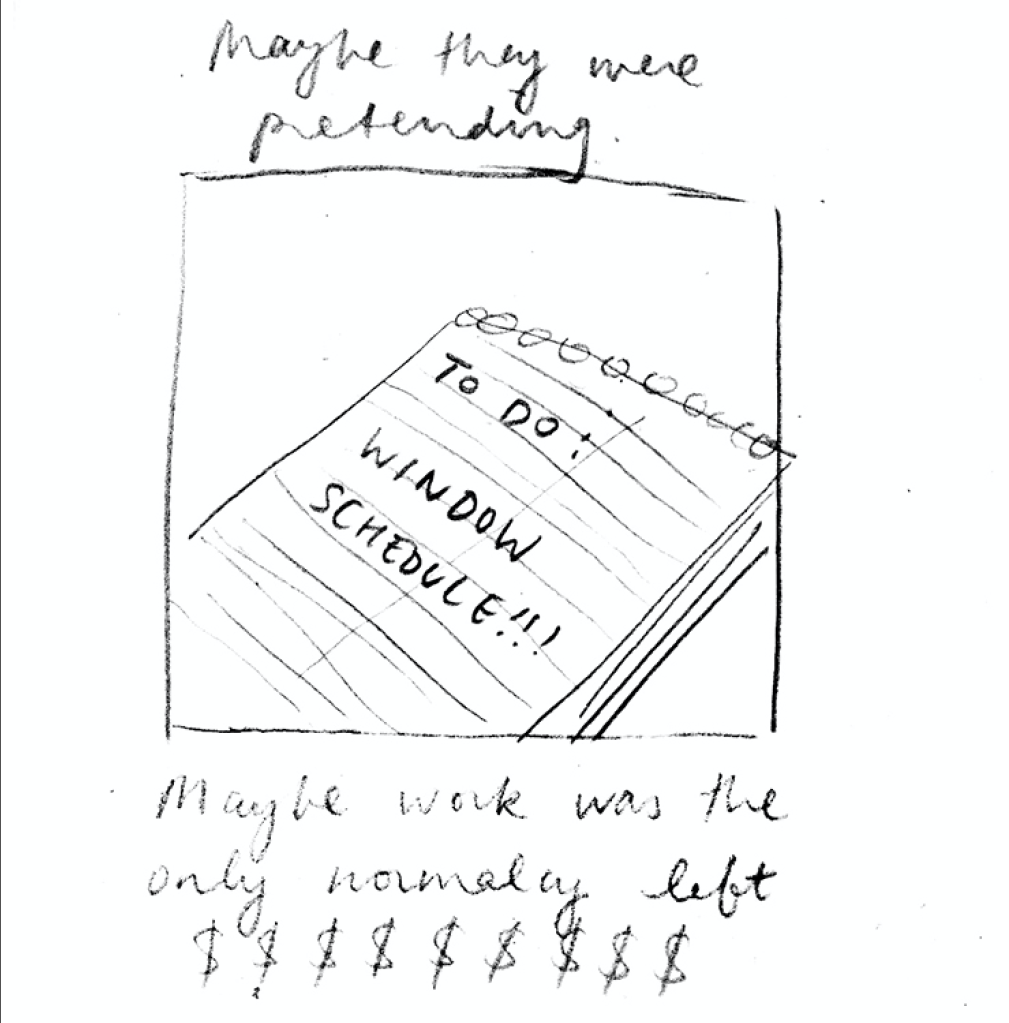 Maybe they were
pretending.
TO DO:
WINDOW
SCHEDULE!!!
Maybe work was the
only normalcy left
$ $ $ $ $ $ $ $ $